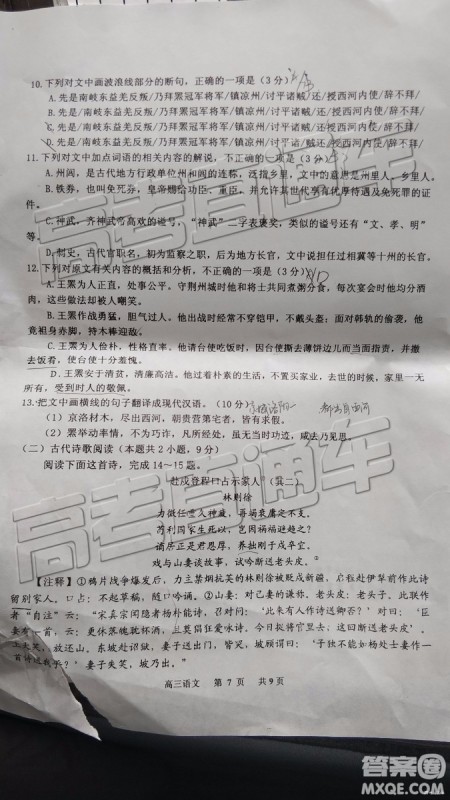 10.下列对文中画波浪线部分的断句，正确的一项是（3分）
A.先是/南岐东益羌反叛/乃拜罴冠军将军/镇凉州/讨平诸贼/还/授西河内使/辞不拜/
B.先是南岐东益羌反叛/乃拜罴冠军将军/镇凉州/讨平诸贼/还/授西河内使/辞不拜/
C.先是/南岐东益羌反叛/乃拜罴冠军将军/镇凉州/讨平诸贼
D.先是南岐东益羌反叛/乃拜罴冠军将军/镇凉州/讨平诸贼
11.下列对文中加点词语的相关内容的解说，不正确的一项是（3分）
A.州闾，是古代地方行政单位州和闾的连称，泛指乡里，文中的意思是州里人，乡里人。
B.铁券，也叫免死券，皇帝赐给功臣、重臣，并允诺其本人和后代享有优厚待遇及免死罪的证
件。
C.神武，齐神武帝高欢的谥号，“神武”二字表褒奖，类似的谥号还有“文、孝、明”
等。
D.刺史，古代官职名，初为监察之职，后为地方行政长官，文中说担任过相冀等十州的长官。
12.下列对原文有关内容的概括和分析，不正确的一项是（3分）
A.王罴为人正直，处事公平。守荆州城时他和将士共同煮粥分食，每次宴会时他均当
洒，这些做法却被人嘲笑。
B.王罴作战勇猛，胆气过人。他出战时经常不穿铠甲，不戴头盔；面对韩轨的偷袭，他
竟袒身赤脚，持木棒迎敌。
C.王罴为人俭朴，性格直率。他与台使吃饭时，因台使撕去薄饼边儿而当面批评，并撤
去饭肴，使台使十分羞愧。
D.王罴安于清贫，清廉高洁。他过着朴素的生活，不置买家业，去世的时候，家里一无
所有，受到时人的敬佩。
13.把文中画横线的句子翻译成现代汉语。（10分）
（1）京洛材木，尽出西河，朝贵营第宅者，皆有求假。
（2）罴举动率情，不为巧诈，凡所经处，虽当时功迹，咸去乃见思。
（二）古代诗歌阅读（本题共2小题，9分）
阅读下面这首诗，完成14～15题。
赴戍登程口占示家人①（其二）
林则徐
力微任重久神疲，再竭衰庸定不支。
苟利国家生死以，岂因祸福避趋之？
谪居正是君恩厚，养拙刚于戍卒宜。
戏与山妻谈故事，试吟断送老头皮。②
【注释】①鸦片战争爆发后，力主禁烟抗英的林则徐被贬戍新疆，启程赴伊犁前作此诗
留别家人。口占：不起草稿，随口吟诵而成。②山妻：对己妻的谦称。老头皮：老头子。作
者“自注”云：“宋真宗闻隐者杨朴能诗，召对问：‘此来有人作诗送卿否？’对曰：‘臣
妻有一首，云：更休落魄耽杯酒，且莫猖狂爱咏诗。今日捉将官里去，这回断送老头皮。’
上大笑，放还山。东坡赴诏狱，妻子送出门，皆哭，坡顾谓曰：‘子独不能如杨处士妻作一
首诗送我乎？’妻子失笑，坡乃出。”
高三语文 第7页 共9页
高考直通车
高考直通车
答案圈